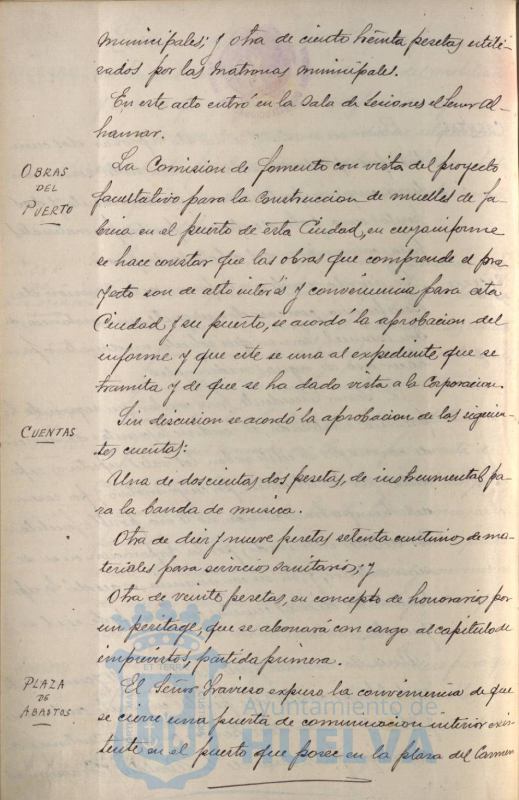 municipales; y otra de ciento treinta pesetas utili-
zados por las matronas municipales.
En este acto entró en la sala de sesiones el Señor Al-
hamar.
OBRAS
DEL
PUERTO
La Comision de fomento con vista del proyecto
facultativo para la construccion de muelles de fá-
brica en el puerto de esta Ciudad, en cuyo informe
se hace constar que las obras que comprende el pro-
yecto son de alto interés y conveniencia para esta
Ciudad y su puerto, se acordó la aprobacion del
informe y que este se una al expediente que se
tramita y de que se ha dado vista a la Corporacion.
CUENTAS
Sin discusion se acordó la aprobacion de las siguien-
tes cuentas:
Una de doscientas dos pesetas, de instrumental pa-
ra la banda de musica.
Otra de diez y nueve pesetas setenta centimos de ma-
teriales para servicios sanitarios; y
Otra de veinte pesetas, en concepto de honorarios por
un peritage, que se abonará con cargo al capítulo de
imprevistos, partida primera.
PLAZA
DE
ABASTOS
El Señor Travieso expuso la conveniencia de que
se cierre una puerta de comunicacion interior exis-
tente en el puesto que posee en la plaza del Carmen
Ayuntamiento de
HUELVA